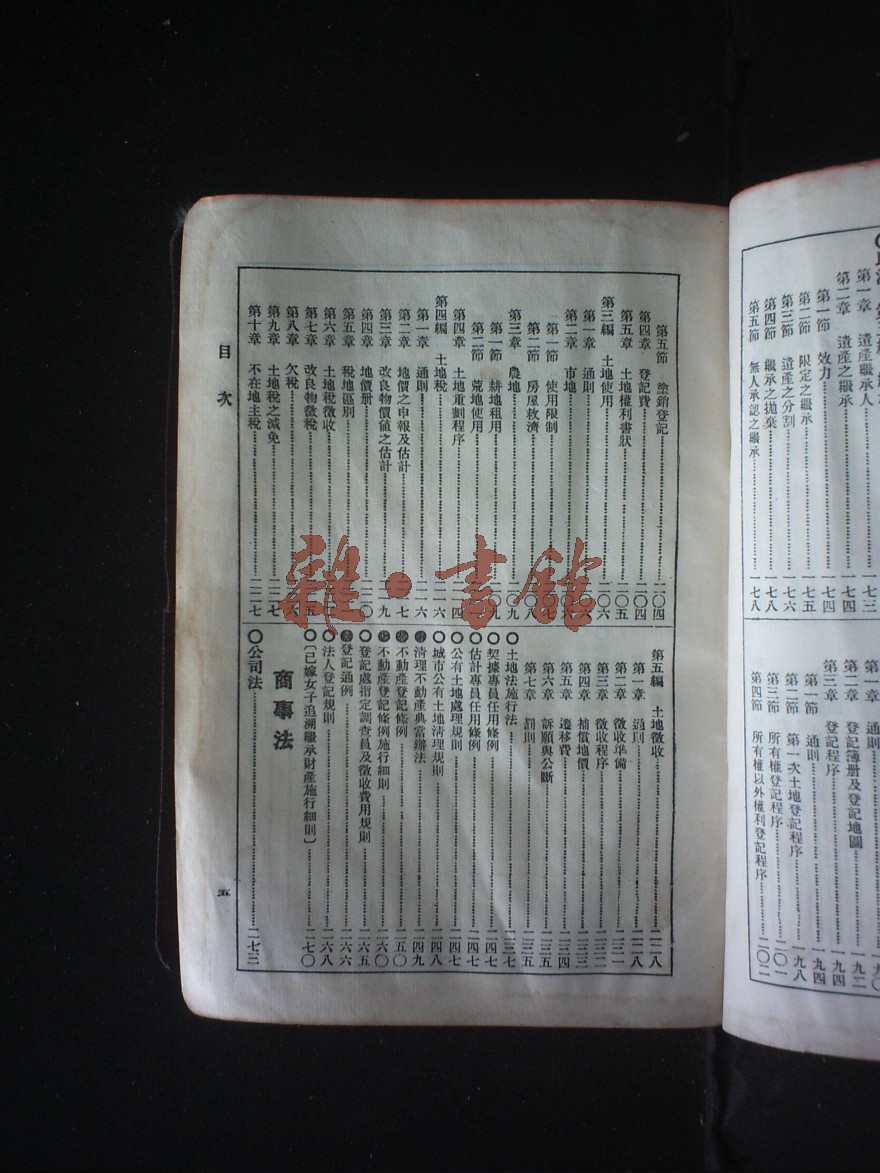 第一章　遺產繼承人……一七三
第二章　遺產之繼承……一七四
第一節　效力……一七四
第二節　限定之繼承……一七五
第三節　遺產之分割……一七六
第四節　繼承之拋棄……一七八
第五節　無人承認之繼承……一七八
第一章　通則
第二章　登記簿册及登記地圖……一九二
第三章　登記程序……一九四
第一節　通則……一九四
第二節　第一次土地登記程序……一九八
第三節　所有權登記程序……二〇一
第四節　所有權以外權利登記程序……二〇二
第五節　塗銷登記……二〇四
第四章　登記費……二〇四
第五章　土地權利書狀……二〇五
第三編　土地使用……二〇六
第一章　通則
第二章　市地
第一節　使用限制
第二節　房屋救濟
第三章　農地
第一節　耕地租用
第二節　荒地使用
第四章　土地重劃程序
第四編　土地稅……二一六
第一章　通則……二一六
第二章　地價之申報及估計
第三章　改良物價値之估計
第四章　地價册……二二〇
第五章　稅地區別
第六章　土地稅徵收
第七章　改良物徵稅
第八章　欠稅
第九章　土地稅之減免……二二七
第十章　不在地主稅……二二七
第五編　土地徵收……二二八
第一章　通則……二二八
第二章　徵收準備……二三一
第三章　徵收程序……二三二
第四章　補償地價……二三三
第五章　遷移費……二三四
第六章　訴願與公斷……二三五
第七章　罰則……二三五
〇土地法施行法……二三七
〇契據專員任用條例……二四七
〇估計專員任用條例……二四七
〇公有土地處理規則……二四七
〇城市公有土地清理規則……二四八
清理不動產典當辦法……二四九
不動產登記條例……二五〇
不動產登記條例施行細則……二六〇
〇登記處指定調查員及徵收費用規則……二六五
登記通例……二六六
〇法人登記規則……二六八
〇〔已嫁女子追溯繼承財產施行細則〕……二七〇
商事法
〇公司法……二七三
目次
五
雜·書館